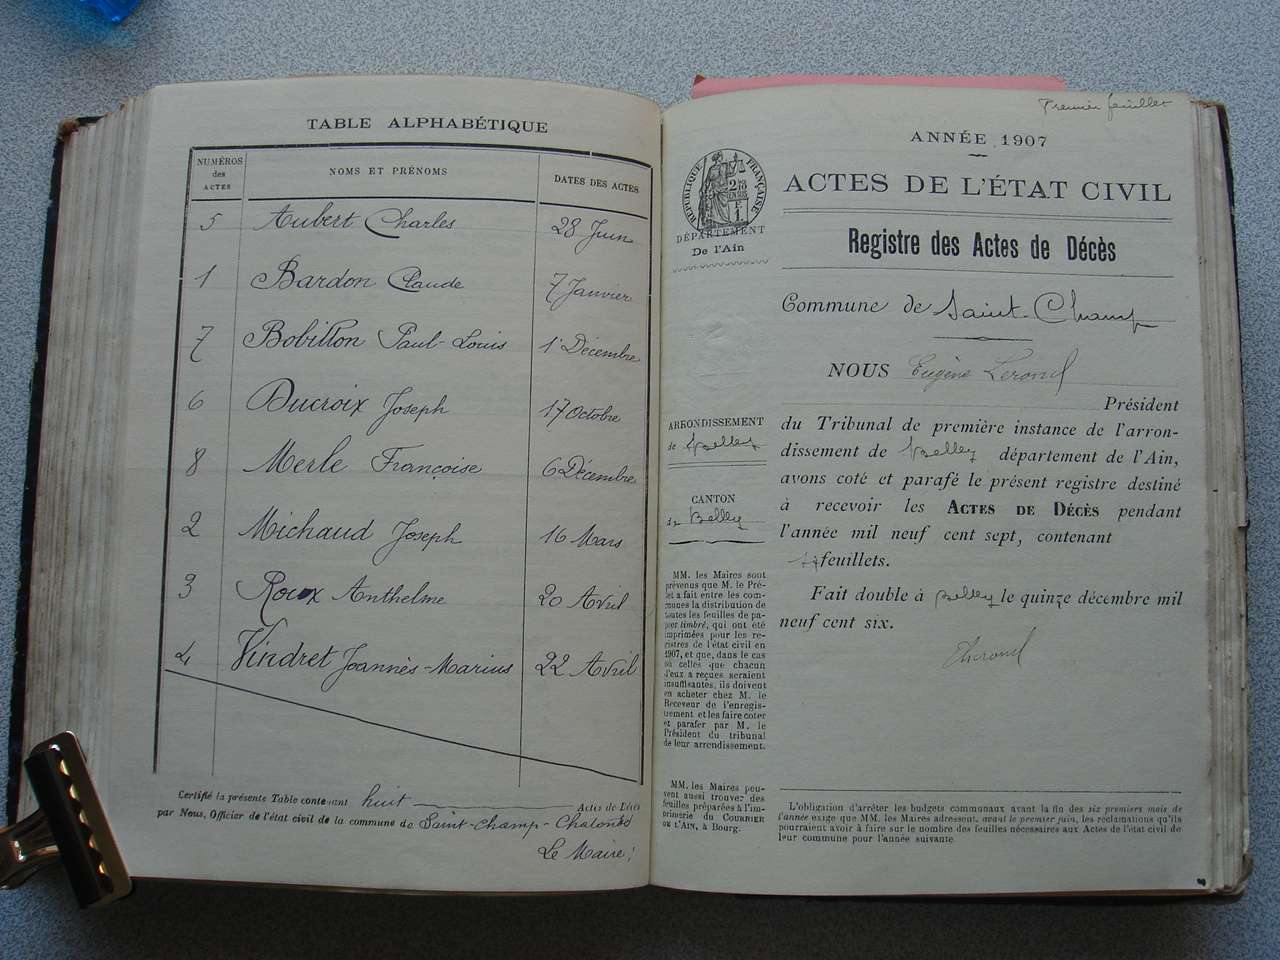 TABLE ALPHABÉTIQUE
NUMÉROS des ACTES
NOMS ET PRÉNOMS
DATES DES ACTES
5 Aubert Charles 28 Juin
1 Bardon Claude 7 Janvier
7 Bobillon Paul-Louis 1 Décembre
6 Ducroix Joseph 17 Octobre
8 Merle Françoise 6 Décembre
2 Michaud Joseph 16 Mars
3 Roux Anthelme 20 Avril
4 Vindret Joannès-Marius 22 Avril
Certifié la présente Table contenant huit Actes de Décès
par Nous, Officier de l'état civil de la commune de Saint-Champ-Chatonod
Le Maire;
Premier feuillet
ANNÉE 1907
RÉPUBLIQUE FRANÇAISE
DÉPARTEMENT
De l'Ain
ACTES DE L'ÉTAT CIVIL
Registre des Actes de Décès
Commune de Saint-Champ
NOUS Eugène
Président
du Tribunal de première instance de l'arron-
dissement de Belley département de l'Ain,
avons coté et parafé le présent registre destiné
à recevoir les ACTES DE DÉCÈS pendant
l'année mil neuf cent sept, contenant
feuillets.
Fait double à Belley le quinze décembre mil
neuf cent six.
ARRONDISSEMENT
de Belley
CANTON
de Belley
MM. les Maires sont
prévenus que M. le Pré-
fet a fait entre les com-
munes la distribution de
toutes les feuilles de pa-
pier timbré, qui ont été
imprimées pour les re-
gistres de l'état civil en
1907, et que, dans le cas
où celles que chacun
d'eux a reçues seraient
insuffisantes, ils doivent
en acheter chez M. le
Receveur de l'enregis-
trement et les faire coter
et parafer par M. le
Président du tribunal
de leur arrondissement.
MM. les Maires peu-
vent aussi trouver des
feuilles préparées à l'im-
primerie du COURRIER
DE L'AIN, à Bourg.
L'obligation d'arrêter les budgets communaux avant la fin des six premiers mois de
l'année exige que MM. les Maires adressent, avant le premier juin, les réclamations qu'ils
pourraient avoir à faire sur le nombre des feuilles nécessaires aux Actes de l'état civil de
leur commune pour l'année suivante.